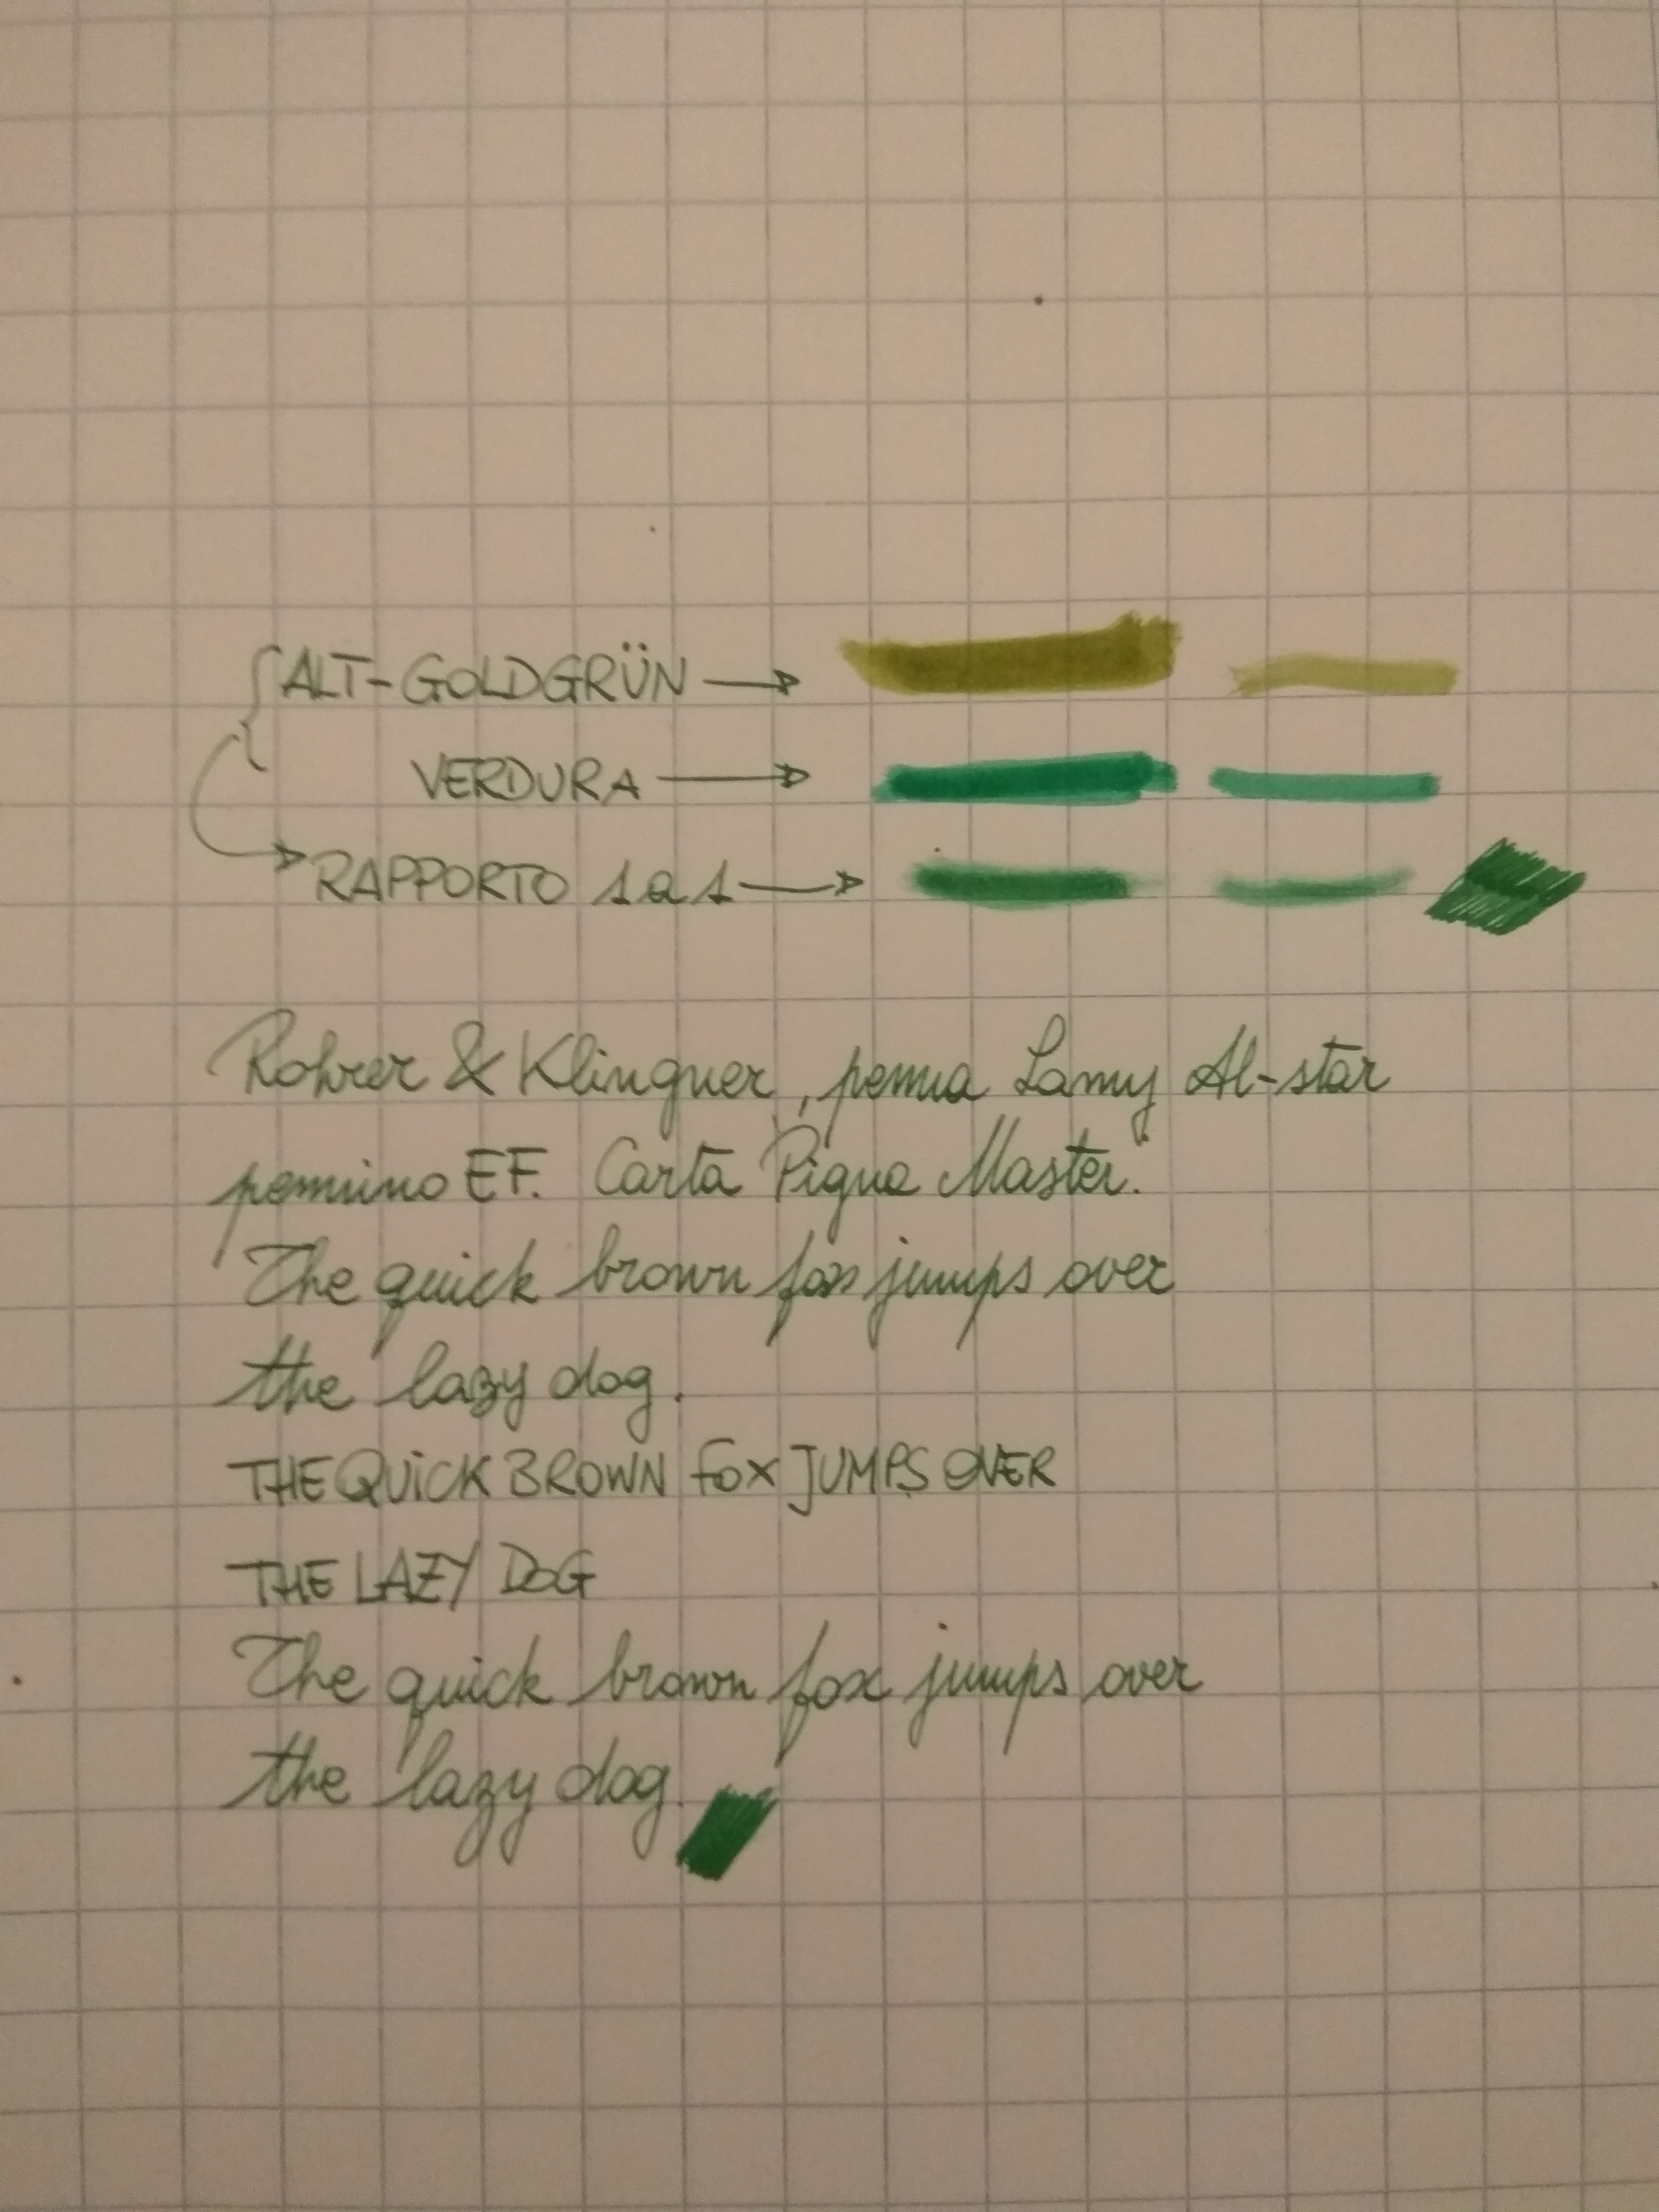 ALT-GOLDGRÜN
VERDURA
RAPPORTO 1 a 1
Rohrer & Klingner, penna Lamy Al-star
pennino EF. Carta Pigna Master.
The quick brown fox jumps over
the lazy dog.
THE QUiCK BROWN FOX JUMPS OVER
THE LAZY DOG
The quick brown fox jumps over
the lazy dog.